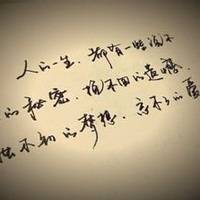 人的一生，都有一些说不
的秘密，挽不回的遗憾，
触不到的梦想，忘不了的爱